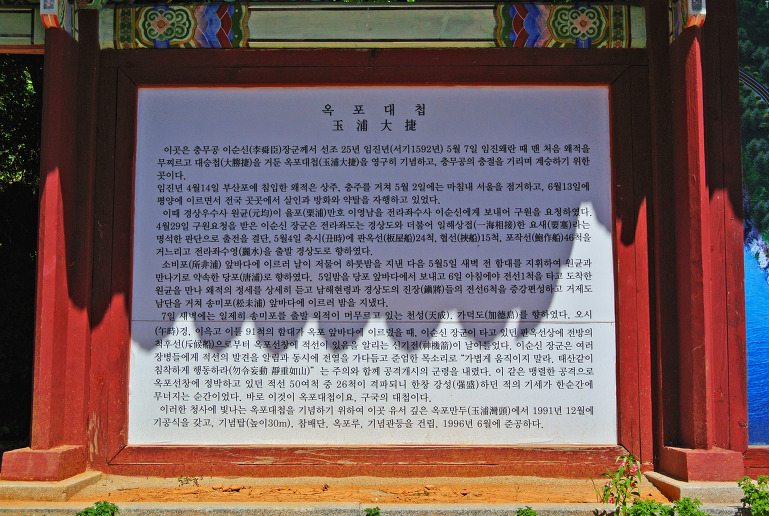 옥 포 대 첩
玉 浦 大 捷
이곳은 충무공 이순신(李舜臣)장군께서 선조 25년 임진년(서기1592년) 5월 7일 임진왜란 때 맨 처음 왜적을
무찌르고 대승첩(大勝捷)을 거둔 옥포대첩(玉浦大捷)을 영구히 기념하고, 충무공의 충절을 기리며 계승하기 위한
곳이다.
임진년 4월14일 부산포에 침입한 왜적은 상주, 충주를 거쳐 5월 2일에는 마침내 서울을 점거하고, 6월13일에
평양에 이르면서 전국 곳곳에서 살인과 방화와 약탈을 자행하고 있었다.
이때 경상우수사 원균(元均)이 율포(栗浦)만호 이영남을 전라좌수사 이순신에게 보내어 구원을 요청하였다.
4월29일 구원요청을 받은 이순신 장군은 전라좌도는 경상도와 더불어 일해상접(一海相接)한 요새(要塞)라는
명석한 판단으로 출전을 결단, 5월4일 축시(丑時)에 판옥선(板屋船)24척, 협선(挾船)15척, 포작선(鮑作船)46척을
거느리고 전라좌수영(麗水)을 출발 경상도로 향하였다.
소비포(所非浦) 앞바다에 이르러 날이 저물어 하룻밤을 지낸 다음 5월5일 새벽 전 함대를 지휘하여 원균과
만나기로 약속한 당포(唐浦)로 향하였다. 5일밤을 당포 앞바다에서 보내고 6일 아침에야 전선1척을 타고 도착한
원균을 만나 왜적의 정세를 상세히 듣고 남해현령과 경상도의 진장(鎭將)들의 전선6척을 중강편성하고 거제도
남단을 거쳐 송미포(松未浦) 앞바다에 이르러 밤을 지냈다.
7일 새벽에는 일제히 송미포를 출발 외적이 머무르고 있는 천성(天成), 가덕도(加德島)를 향하였다. 오시
(午時)경, 이윽고 이들 91척의 함대가 옥포 앞바다에 이르렀을 때, 이순신 장군이 타고 있던 판옥선상에 전방의
척후선(斥候船)으로부터 옥포선창에 적선이 있음을 알리는 신기전(神機箭)이 날아들었다. 이순신 장군은 여러
장병들에게 적선의 발견을 알림과 동시에 전열을 가다듬고 준엄한 목소리로 "가볍게 움직이지 말라. 태산같이
침착하게 행동하라(勿令妄動 靜重如山)" 는 주의와 함께 공격개시의 군령을 내렸다. 이 같은 맹렬한 공격으로
옥포선창에 정박하고 있던 적선 50여척 중 26척이 격파되니 한창 강성(强盛)하던 적의 기세가 한순간에
무너지는 순간이었다. 바로 이것이 옥포대첩이요, 구국의 대첩이다.
이러한 청사에 빛나는 옥포대첩을 기념하기 위하여 이곳 유서 깊은 옥포만두(玉浦灣頭)에서 1991년 12월에
기공식을 갖고, 기념탑(높이30m), 참배단, 옥포루, 기념관등을 건립, 1996년 6월에 준공하다.